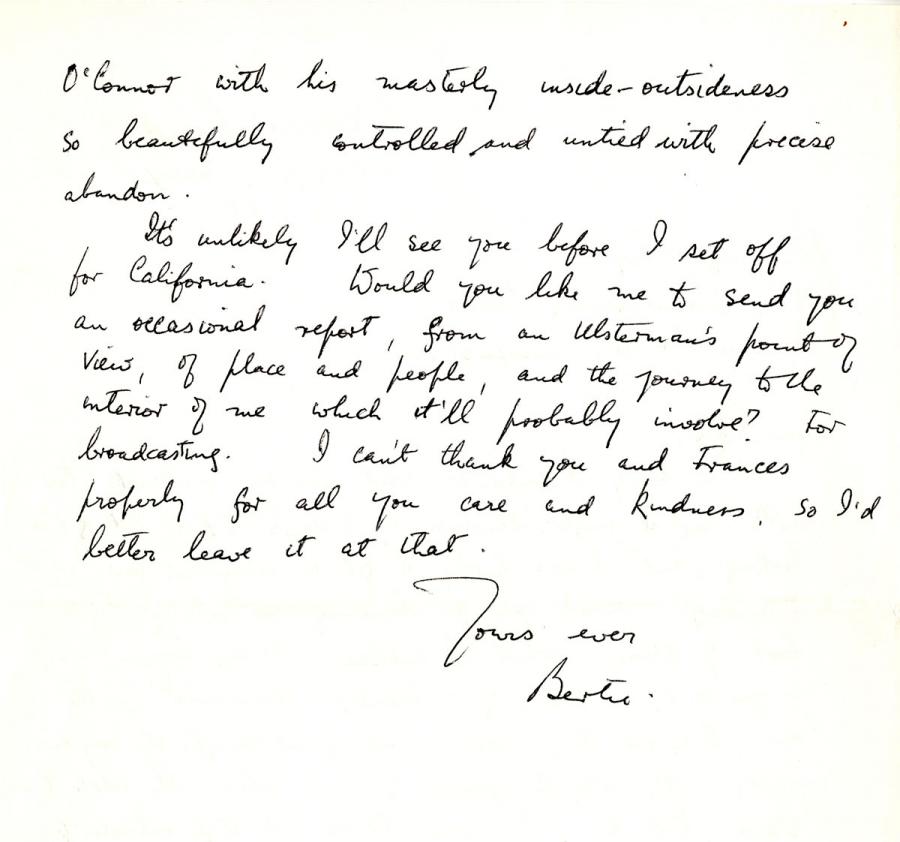 O'Connor with his masterly inside-outsideness
so beautefully controlled and untied with precise
abandon.
It's unlikely I'll see you before I set off
for California. Would you like me to send you
an occasional report, from an Ulsterman's point of
view, of place and people, and the journey to the
interior of me which it'll probably involve? For
broadcasting. I can't thank you and Frances
properly for all you care and kindness, so I'd
better leave it at that.
Yours ever
Bertie.